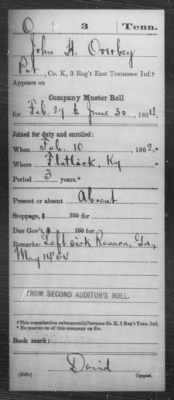 O 3 Tenn.
John H. Overbey
Pvt, Co. K, 3 Reg't East Tennessee Inf.†
Appears on
Company Muster Roll
for Feb. 29 to June 30, 1864.
Joined for duty and enrolled:
When Feb. 10, 1862.*
Where Flatlick, Ky
Period 3 years.*
Present or absent Absent
Stoppage, $ 100 for
Due Gov't, $ 100 for
Remarks: Left sick Resaca, Ga,
May 14 '64
FROM SECOND AUDITOR'S ROLL.
† This organization subsequently became Co. K, 3 Reg't Tenn. Inf.
Book mark:
David
Copyist.